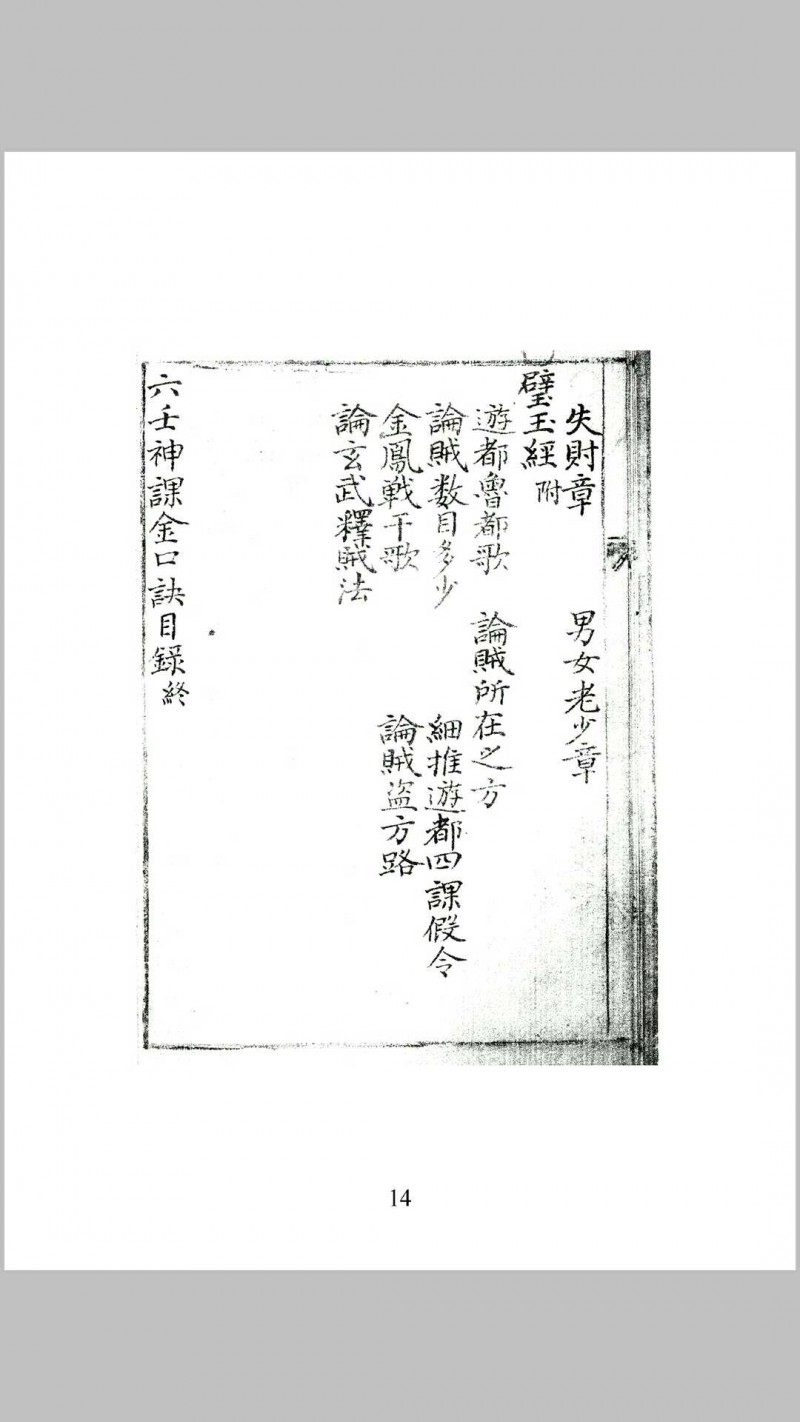 失財章　男女老少章
璧玉經附
遊都魯都歌　論賊所在之方
論賊数目多少　細推遊都四課假令
金鳳戦干歌　論賊盜方路
論玄武釋賊法
六壬神課金口訣目錄終
14